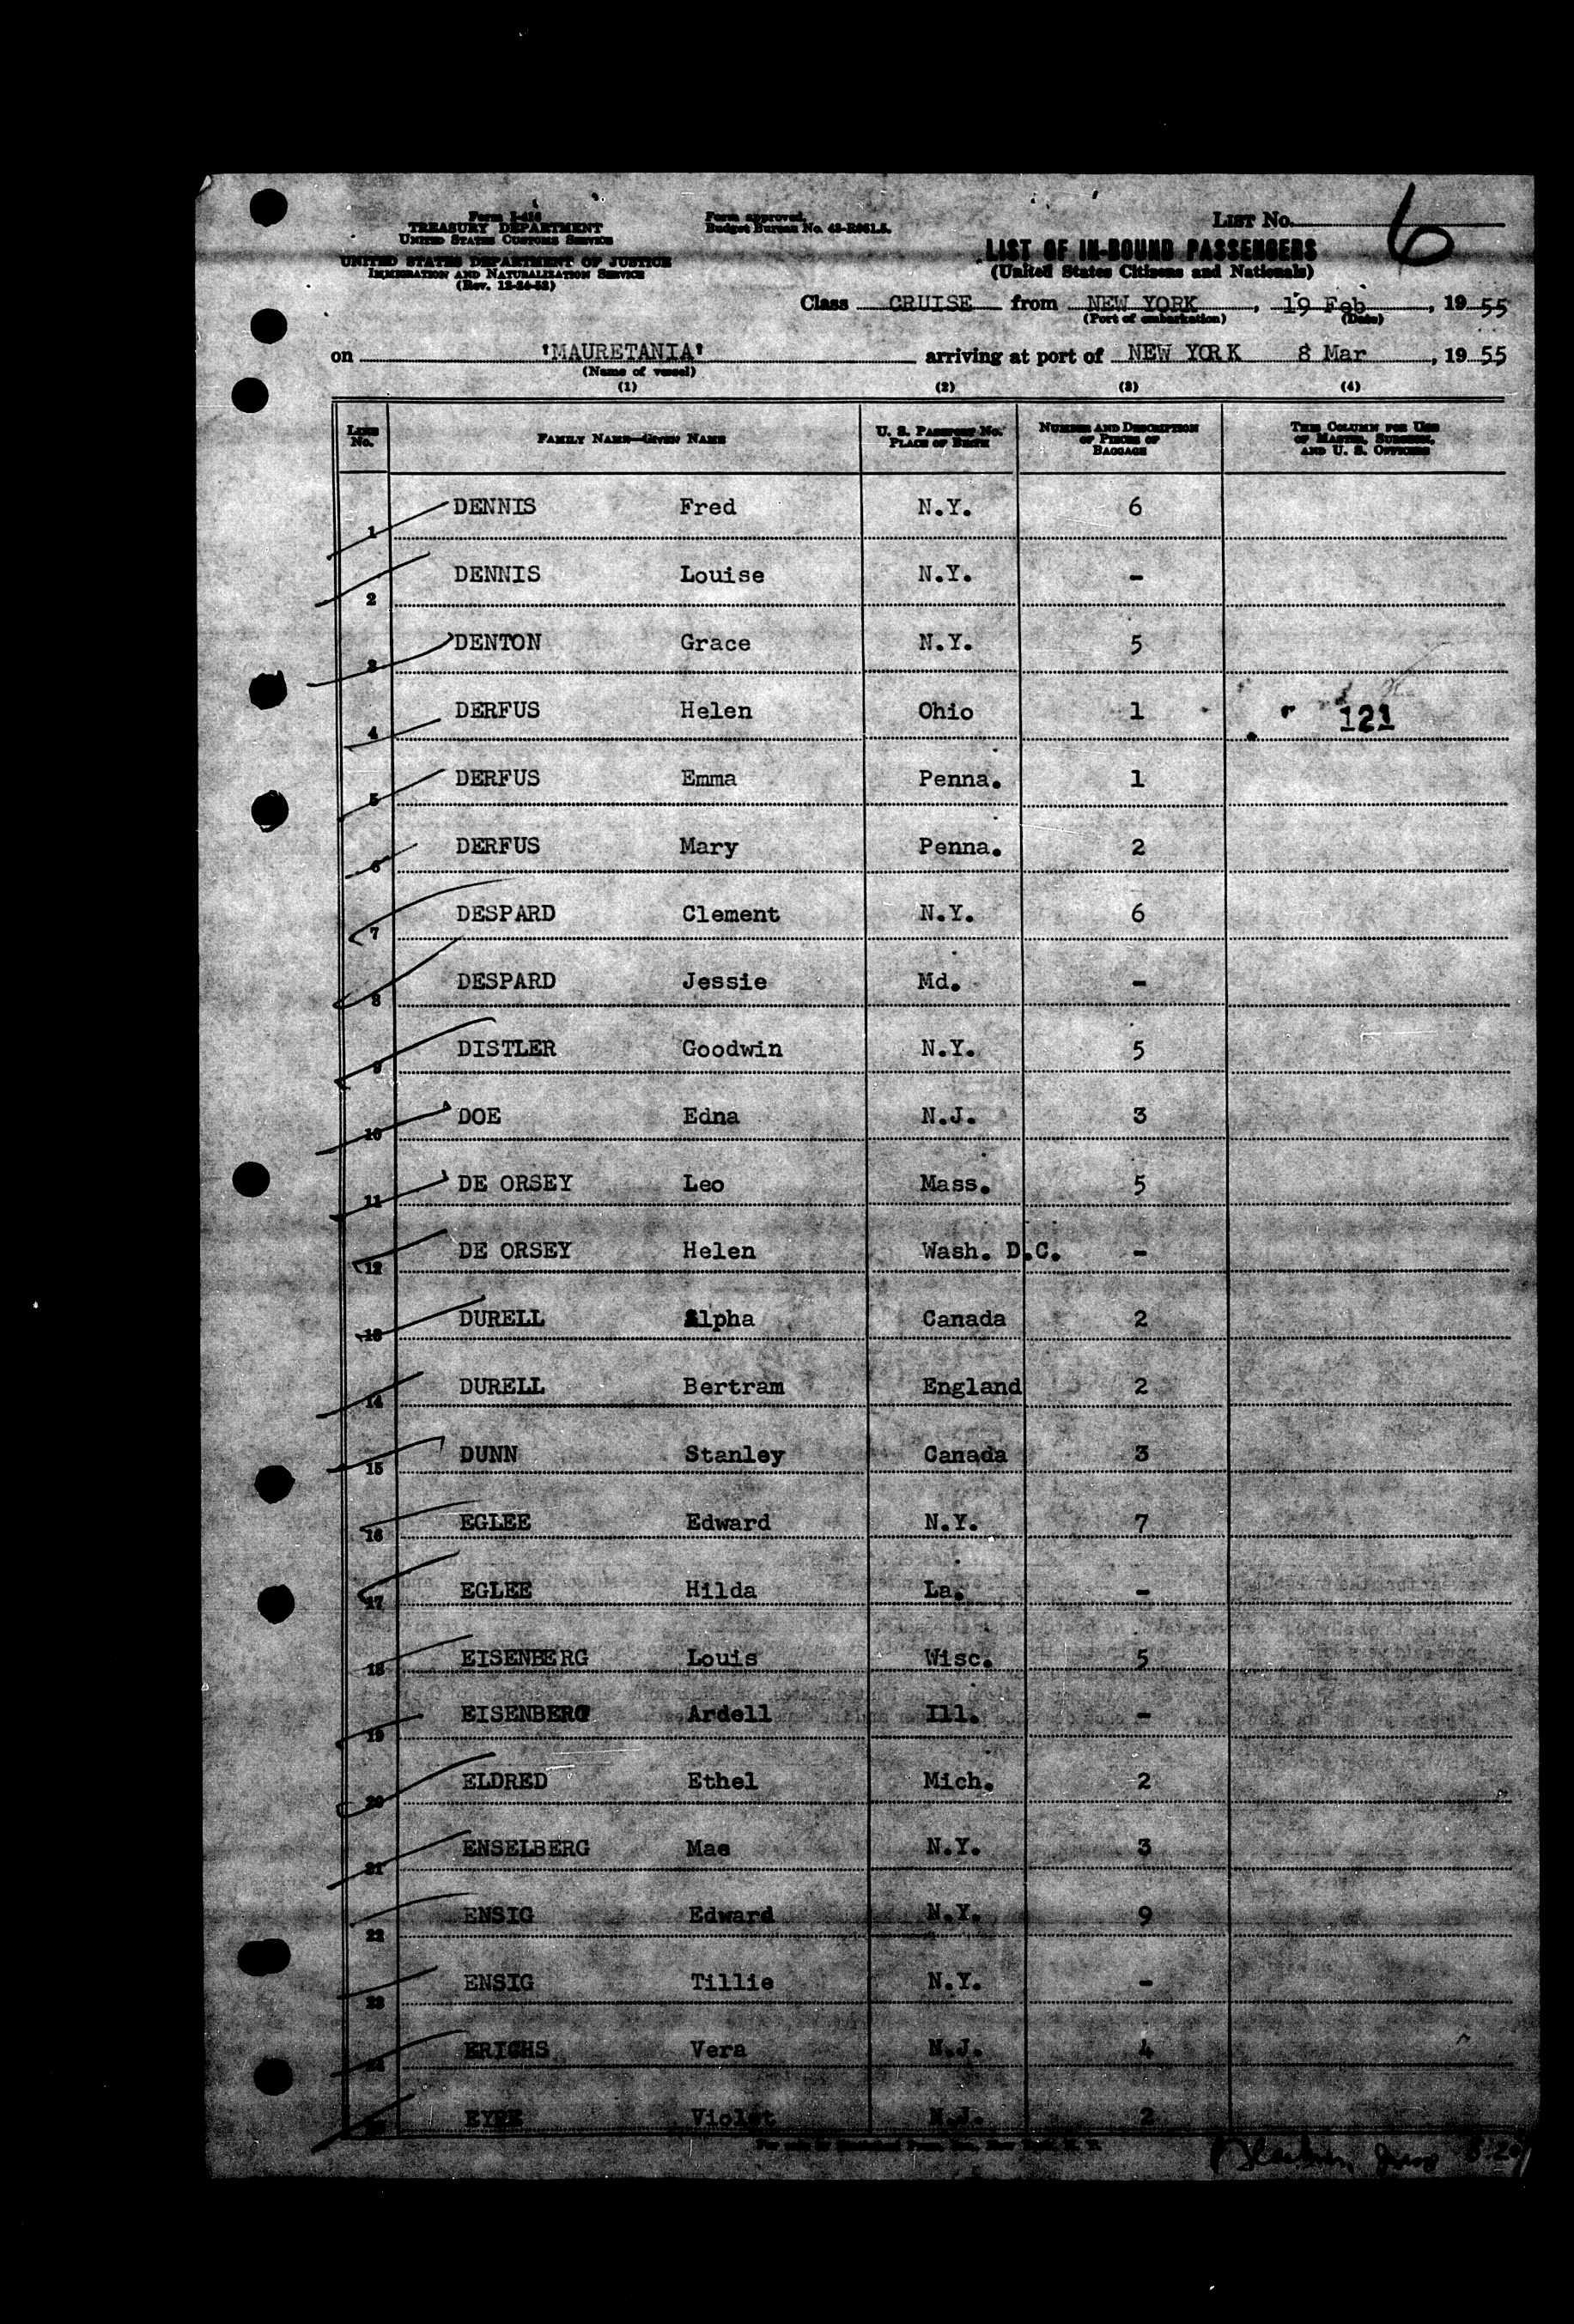 Form I-416
TREASURY DEPARTMENT
UNITED STATES CUSTOMS SERVICE
UNITED STATES DEPARTMENT OF JUSTICE
IMMIGRATION AND NATURALIZATION SERVICE
(Rev. 12-24-52)
Form approved.
Budget Bureau No. 43-R061.5.
LIST No. 6
LIST OF IN-BOUND PASSENGERS
(United States Citizens and Nationals)
Class CRUISE from NEW YORK, 19 Feb, 19 55
(Port of embarkation) (Date)
on 'MAURETANIA' arriving at port of NEW YORK 8 Mar, 19 55
(Name of vessel)
(1) (2) (3) (4)
LINE No. FAMILY NAME—GIVEN NAME U. S. PASSPORT No. PLACE OF BIRTH NUMBER AND DESCRIPTION OF PIECES OF BAGGAGE THIS COLUMN FOR USE OF MASTER, SURGEON, AND U. S. OFFICERS
1 DENNIS Fred N.Y. 6
2 DENNIS Louise N.Y. -
3 DENTON Grace N.Y. 5
4 DERFUS Helen Ohio 1 121
5 DERFUS Emma Penna. 1
6 DERFUS Mary Penna. 2
7 DESPARD Clement N.Y. 6
8 DESPARD Jessie Md. -
9 DISTLER Goodwin N.Y. 5
10 DOE Edna N.J. 3
11 DE ORSEY Leo Mass. 5
12 DE ORSEY Helen Wash. D.C. -
13 DURELL Alpha Canada 2
14 DURELL Bertram England 2
15 DUNN Stanley Canada 3
16 EGLEE Edward N.Y. 7
17 EGLEE Hilda La. -
18 EISENBERG Louis Wisc. 5
19 EISENBERG Ardell Ill. -
20 ELDRED Ethel Mich. 2
21 ENSELBERG Mae N.Y. 3
22 ENSIG Edward N.Y. 9
23 ENSIG Tillie N.Y. -
24 ERICHS Vera N.J. 4
EYRE Violet N.J. 2